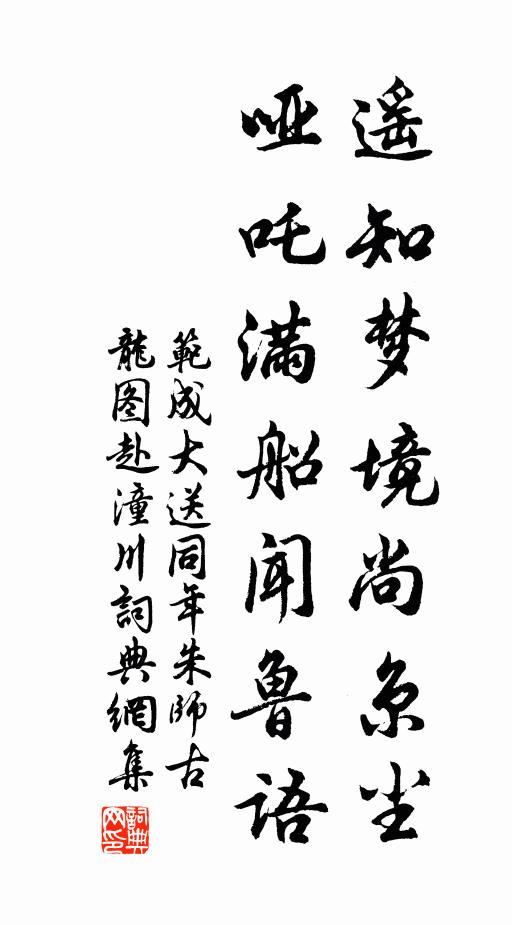 遥知梦境尚京尘
哑吒满船闻鲁语
範成大送同年朱師古
龍图赴潼川詞典網集
詞典网印